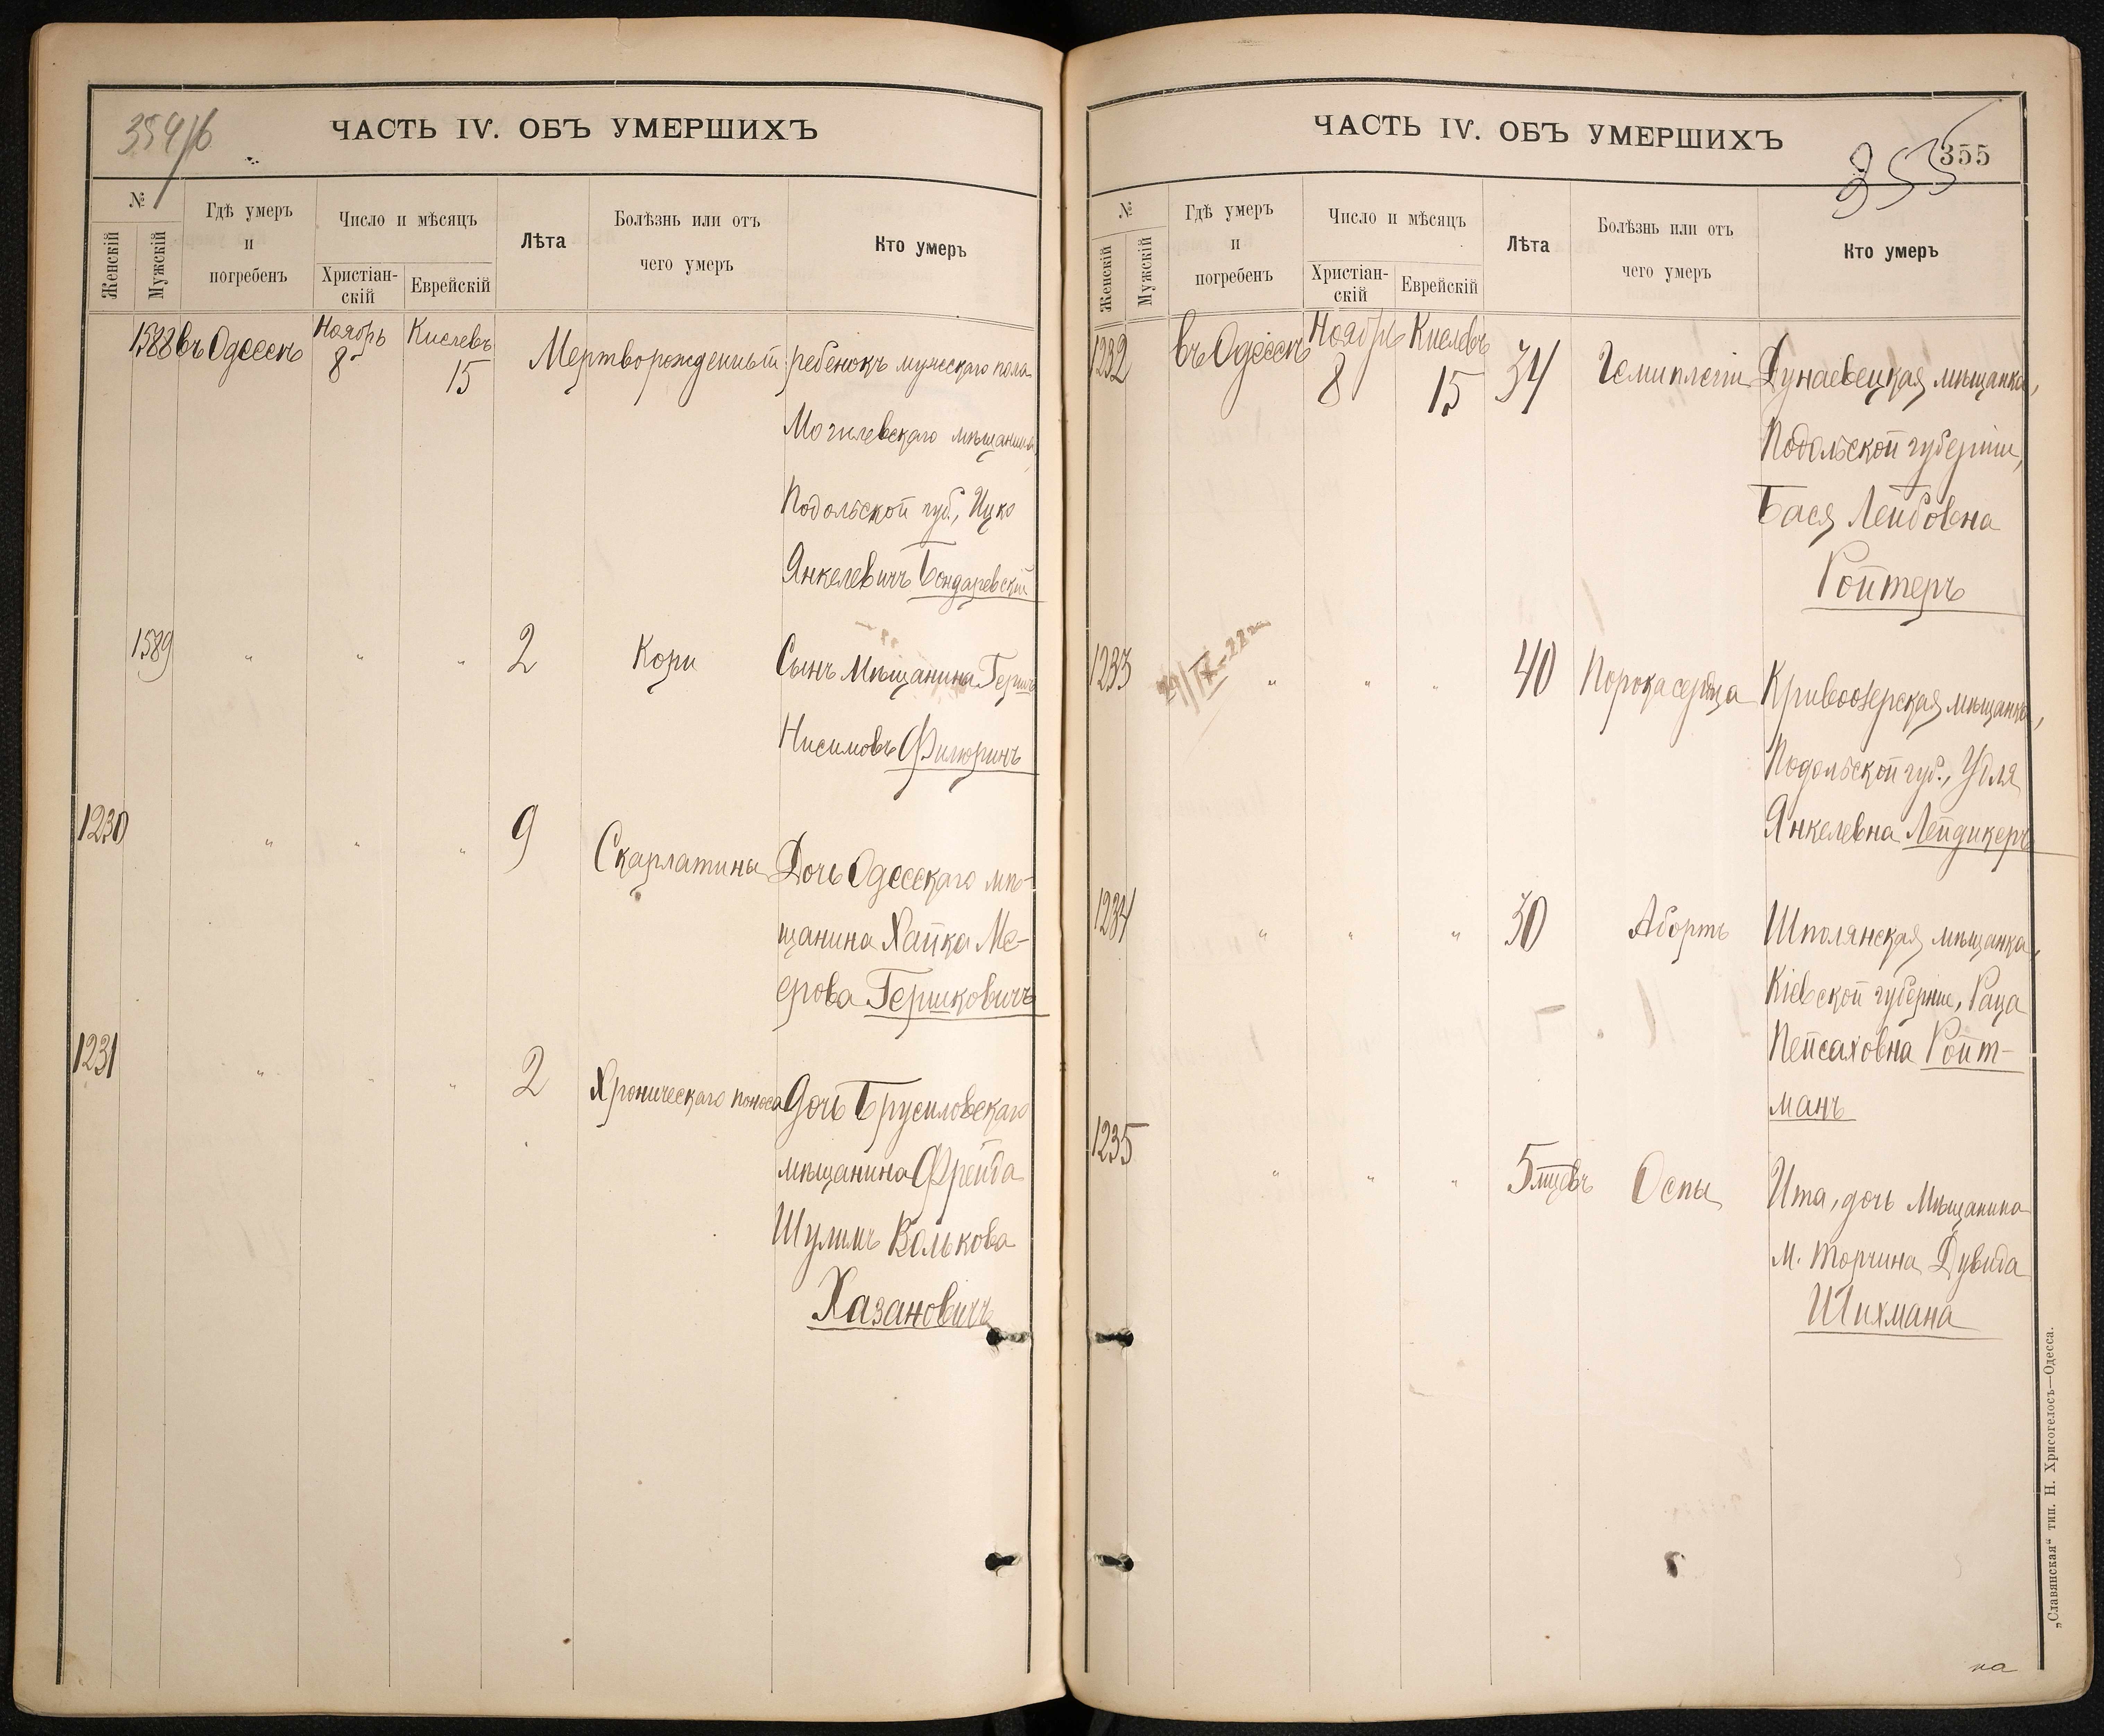 354/б
ЧАСТЬ IV. ОБЪ УМЕРШИХЪ
№
Женскій
Мужскій
Гдѣ умеръ
и
погребенъ
Число и мѣсяцъ
Христіан-
скій
Еврейскій
Лѣта
Болѣзнь или отъ
чего умеръ
Кто умеръ
1588 въ Одессѣ Ноябрь 8 Кислевъ 15 Мертворожденный ребенокъ мужскаго пола
Могилевскаго мѣщанина,
Подольской губ., Ицко
Янкелевичъ Бондаревскій
1589 " " " 2 Кори Сынъ Мѣщанина Гершъ
Нисимовъ Филюринъ
1230 " " " 9 Скарлатины Дочь Одесскаго мѣ-
щанина Хайка Ме-
ерова Гершковичъ
1231 " " " 2 Хроническаго поноса Дочь Брусиловскаго
мѣщанина Фрейда
Шулимъ Волькова
Хазановичъ
ЧАСТЬ IV. ОБЪ УМЕРШИХЪ
355
355
№
Женскій
Мужскій
Гдѣ умеръ
и
погребенъ
Число и мѣсяцъ
Христіан-
скій
Еврейскій
Лѣта
Болѣзнь или отъ
чего умеръ
Кто умеръ
1232 въ Одессѣ Ноябрь 8 Кислевъ 15 34 Гемиплегіи Дунаевецкая мѣщанка,
Подольской губерніи,
Бася Лейбовна
Ройтеръ
1233 " " " 40 Порока сердца Кривоозерская мѣщанка,
Подольской губ., Удля
Янкелевна Лейдикеръ
1234 " " " 30 Абортъ Шполянская мѣщанка,
Кіевской губерніи, Раца
Пейсаховна Ройт-
манъ
1235 " " " 5 мцевъ Оспы Ита, дочь Мѣщанина
м. Торчина Дувида
Шихмана
„Славянская“ тип. Н. Хрисогелосъ—Одесса.